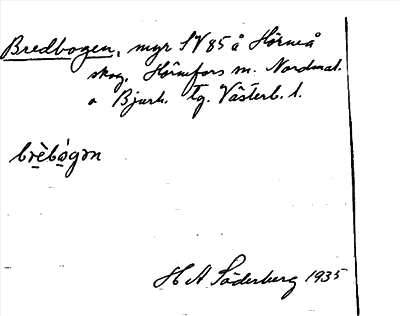 Bredbogen, myr SV 85 å Hörneå
skog, Hörnefors m. Nordmal.
o Bjurh. tg. Västerb. l.
brèbógən
H A Söderberg 1935